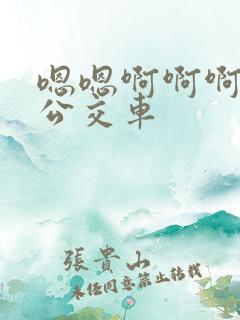 嗯嗯啊啊啊
公交车
張貴山
未经同意禁止转载